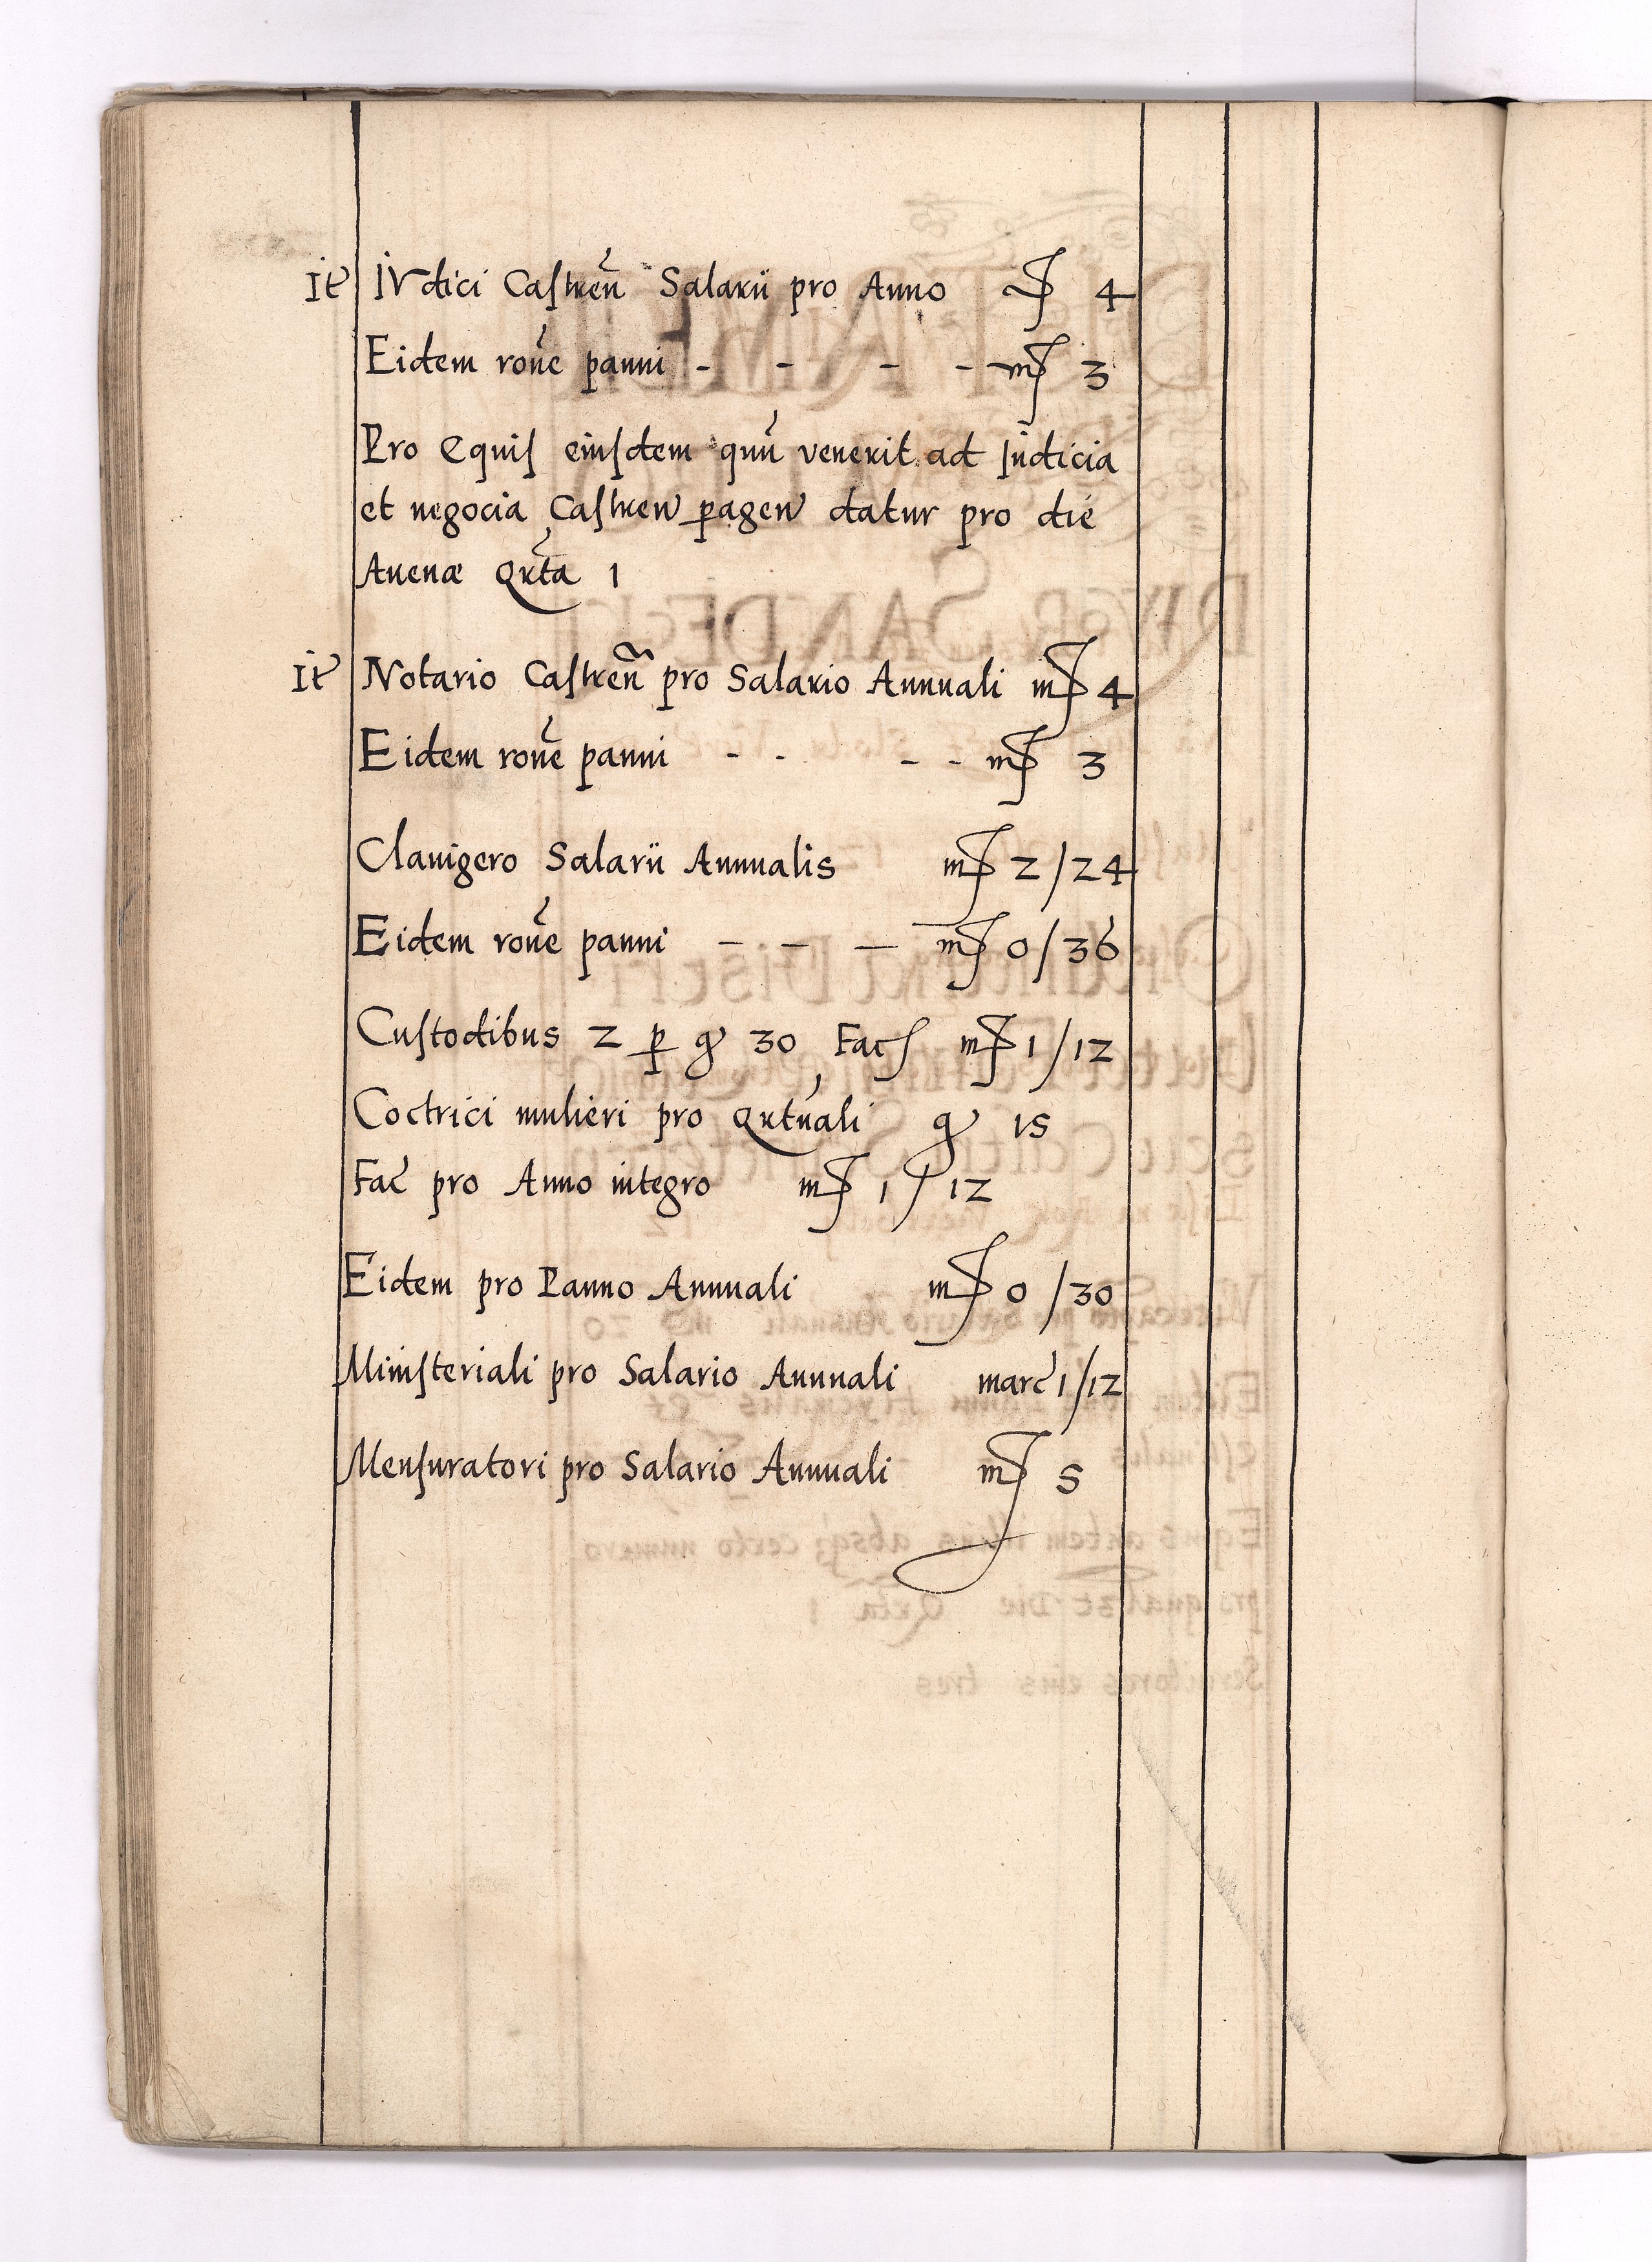 It Iudici Castren Salarii pro Anno mр 4
Eidem rone panni - - - - mр 3
Pro equis eiusdem quu venerit ad Judicia
et negocia Castren pagen datur pro die
Auenæ Qrta 1
It Notario Castren pro Salario Annuali mр 4
Eidem rone panni - - - - mр 3
Clauigero Salarii Annualis mр 2/24
Eidem rone panni - - - mр 0/36
Custodibus 2 p gr 30 Fac mр 1/12
Coctrici mulieri pro Qrtuali gr 15
Fac pro Anno integro mр 1/12
Eidem pro Panno Annuali mр 0/30
Ministeriali pro Salario Annuali marc 1/12
Mensuratori pro Salario Annuali mр 5